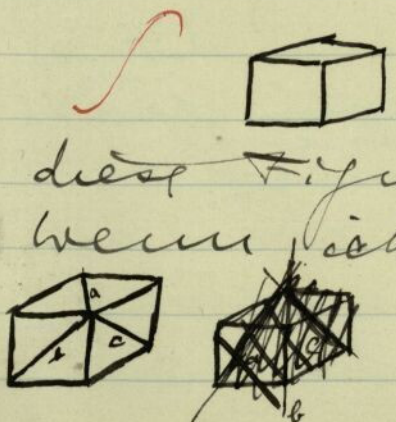 diese Figu
wenn ich
a
b c
c
b